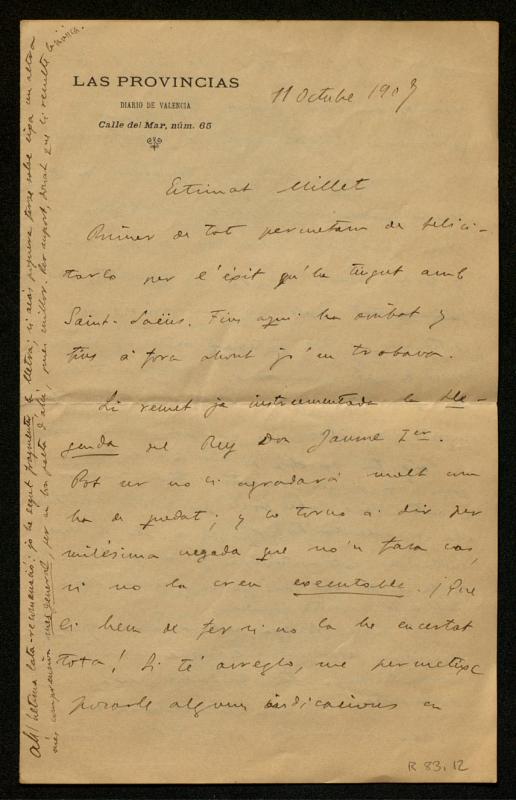 LAS PROVINCIAS
DIARIO DE VALENCIA
Calle del Mar, núm. 65
11 Octubre 1907
Estimat Millet
Primer de tot permetam de felici-
tarlo per l'éxit qu'ha tingut amb
Saint-Saëns. Fins aquí ha arribat y
fins á fora ahont jo'm trobava.
Li remet ja instrumentada la Lle-
genda del Rey Don Jaume Ier.
Pot ser no li agradará molt com
ha quedat; y lo torno á dir per
milésima vegada que no'n fasa cas,
si no la creu executable. ¡Que
li hem de fer si no la he encertat
tota! Si té arreglo, me permetixc
posarle algunes indicacions en
Ah! Letrina
jo he segut la lletra; si
més comprensión més general, per
R 83.12